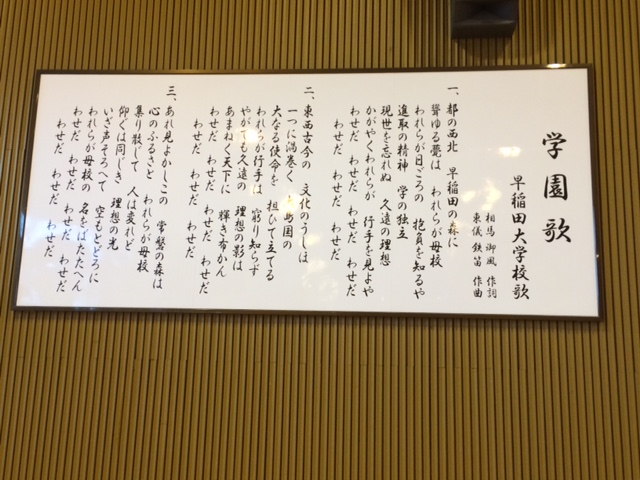 学園歌
早稲田大学校歌
相馬御風 作詞
東儀鉄笛 作曲
一、都の西北 早稲田の森に
聳ゆる甍は われらが母校
われらが日ごろの 抱負を知るや
進取の精神 学の独立
現世を忘れぬ 久遠の理想
かがやくわれらが 行手を見よや
わせだ わせだ わせだ わせだ
わせだ わせだ わせだ
二、東西古今の 文化のうしほ
一つに渦巻く 島国の
大なる使命を 担ひて立てる
われらが行手は 窮り知らず
やがても久遠の 理想の影は
あまねく天下に 輝き布かん
わせだ わせだ わせだ わせだ
わせだ わせだ わせだ
三、あれ見よかしこの 常磐の森は
心のふるさと われらが母校
集り散じて 人は変れど
仰ぐは同じき 理想の光
いざ声そろへて 空もとどろに
われらが母校の 名をばたたへん
わせだ わせだ わせだ わせだ
わせだ わせだ わせだ